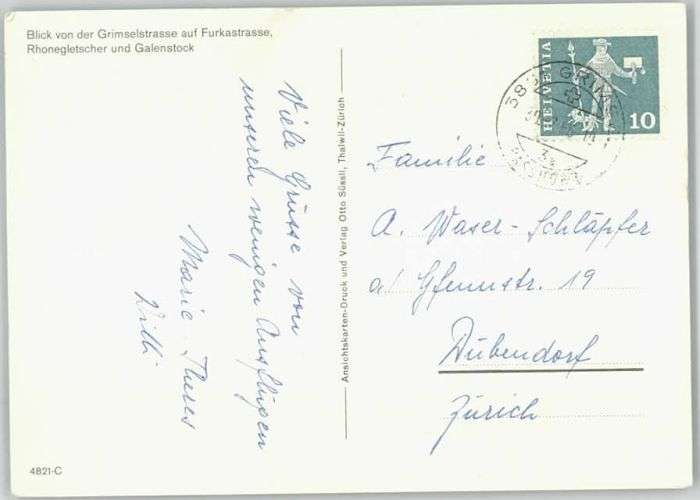 Blick von der Grimselstrasse auf Furkastrasse,
Rhonegletscher und Galenstock
Viele Grüsse von
unseren wenigen Ausflügen
Marie-Theres
Willi
Ansichtskarten-Druck und Verlag Otto Süssli, Thalwil-Zürich
HELVETIA
10
GRIM
Familie
A. Waser-Schläpfer
a/ Gfennstr. 19
Dübendorf
Zürich
4821-C